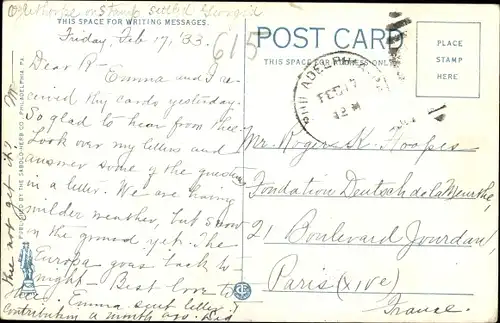 Oglethorpe on Stamp settled Georgia
THIS SPACE FOR WRITING MESSAGES.
Friday, Feb 17, '33
615
Dear R- Emma and I re-
ceived thy cards yesterday.
So glad to hear from thee.
Look over my letters and
answer some of the questions
in a letter. We are having
milder weather, but snow
on the ground yet. The
Europa goes back to
night - Best love to
thee, Emma sent letter &
contribution a month ago. Did
thee not get it? M
PUBLISHED BY THE SABOLD-HERB CO. PHILADELPHIA, PA.
POST CARD
THIS SPACE FOR
PLACE
STAMP
HERE
PHILADELPHIA
FEB 17
12 M
Mr. Rogers K. Hoopes
Fondation Deutsch de la Meurthe,
21 Boulevard Jourdan,
Paris (XIVe)
France.